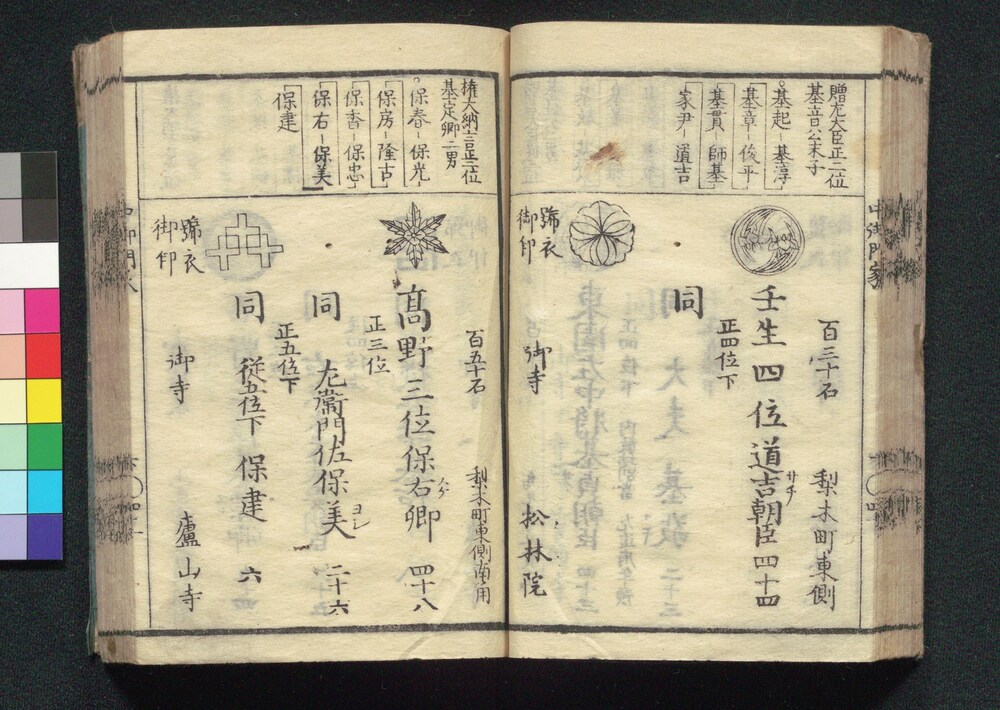 贈左大臣正二位
基音公末子
基起 基淳
基章 俊平
基貫 師基
家尹 道吉
百三十石 梨木町東側
壬生四位道吉朝臣 四十四
サチ
正四位下
同
號衣
御印 御寺 松林院
権大納言正二位
基定卿二男
保春 保光
保房 隆古
保香 保忠
保右 保美
保建
百五十石 梨木町東側南角
髙野三位保右卿 四十八
正三位
同 左衛門佐保美 二十六
ヨシ
正五位下
同 從五位下 保建 六
號衣
御印 御寺 廬山寺
中御門家